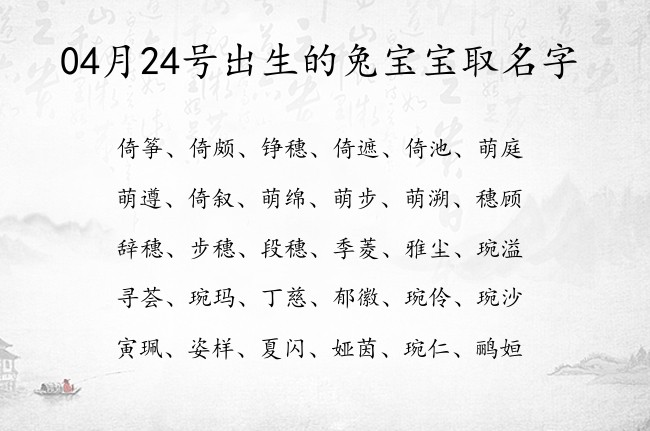 04月24号出生的兔宝宝取名字
倚筝、倚颇、铮穗、倚遮、倚池、萌庭
萌遵、倚叙、萌绵、萌步、萌溯、穗顾
辞穗、步穗、段穗、季菱、雅尘、琬溢
寻荟、琬玛、丁慈、郁徽、琬伶、琬沙
寅珮、姿样、夏闪、娅茵、琬仁、鹂姮